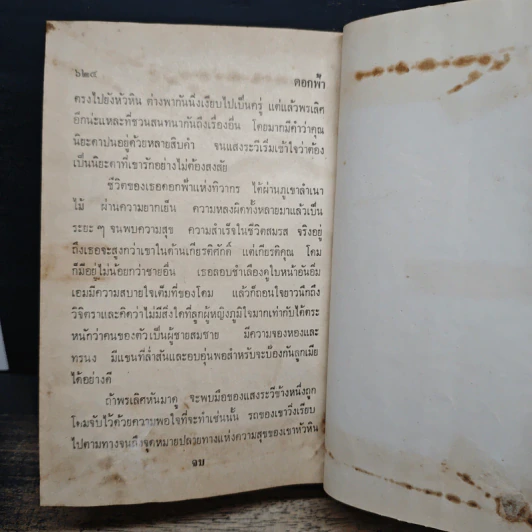 ๖๒๔
ดอกฟ้า
ตรงไปยังหัวหิน ต่างพากันนิ่งเงียบไปเป็นครู่ แต่แล้วพรเลิศ
อีกน่ะแหละที่ชวนสนทนากันถึงเรื่องอื่น โดยมากมีคำว่าคุณ
นิยะดาปนอยู่ด้วยหลายสิบคำ จนแสงระวีเริ่มเข้าใจว่าต้อง
เป็นนิยะดาที่เขารักอย่างไม่ต้องสงสัย
ชีวิตของเธอดอกฟ้าแห่งทิวากร ได้ผ่านภูเขาลำเนา
ไม้ ผ่านความยากเย็น ความหลงผิดทั้งหลายมาแล้วเป็น
ระยะ ๆ จนพบความสุข ความสำเร็จในชีวิตสมรส จริงอยู่
ถึงเธอจะสูงกว่าเขาในด้านเกียรติศักดิ์ แต่เกียรติคุณ โดม
ก็มีอยู่ไม่น้อยกว่าชายอื่น เธอลอบชำเลืองดูใบหน้าอันอิ่ม
เอมมีความสบายใจเต็มที่ของโดม แล้วก็ถอนใจยาวนึกถึง
วิจิตราและคิดว่าไม่มีสิ่งใดที่ลูกผู้หญิงภูมิใจมากเท่ากับได้ตระ
หนักว่าคนของตัวเป็นผู้ชายสมชาย มีความจองหองและ
ทรนง มีแขนที่ล่ำสันและอบอุ่นพอสำหรับจะป้องกันลูกเมีย
ได้อย่างดี
ถ้าพรเลิศหันมาดู จะพบมือของแสงระวีข้างหนึ่งถูก
โดมจับไว้ด้วยความพอใจที่จะทำเช่นนั้น รถของเขาวิ่งเรียบ
ไปตามทางจนถึงจุดหมายปลายทางแห่งความสุขของเขาหัวหิน
จบ